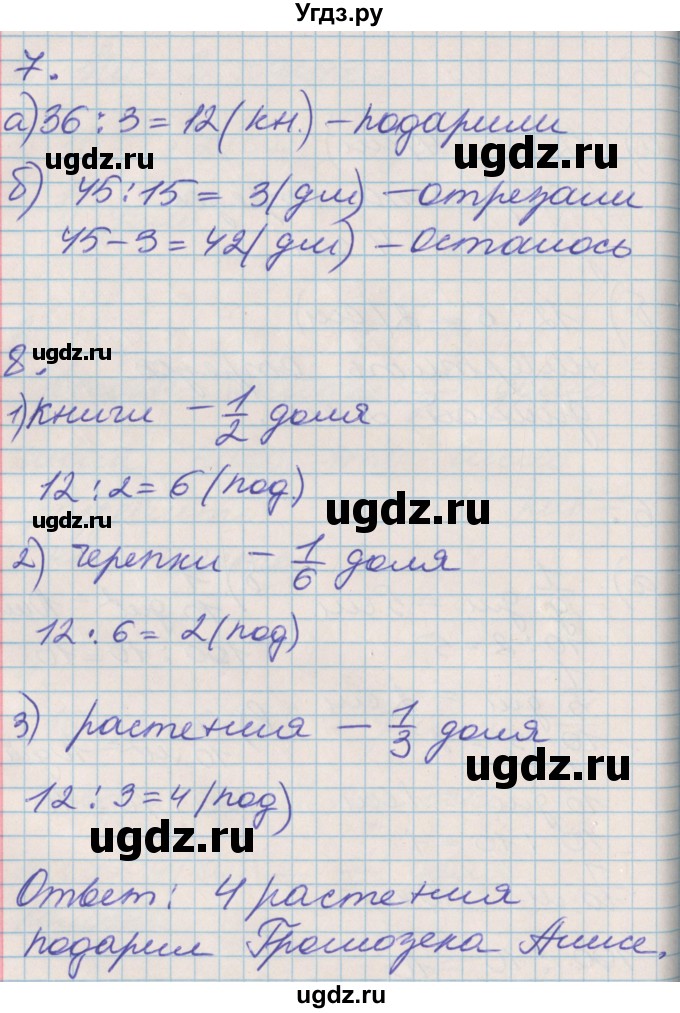 Угдз.ру
7.
а) 36 : 3 = 12 (кн.) – подарили
ugdz.ru ugdz.ru
б) 45 : 15 = 3 (дм) – отрезали
45 – 3 = 42 (дм) – осталось
8.
ugdz.ru
1) книги – 1/2 доля
12 : 2 = 6 (под)
ugdz.ru ugdz.ru
2) черепки – 1/6 доля
12 : 6 = 2 (под)
3) растения – 1/3 доля
ugdz.ru
12 : 3 = 4 (под)
ugdz.ru
Ответ: 4 растения
подарил Громозека Алисе.
ugdz.ru